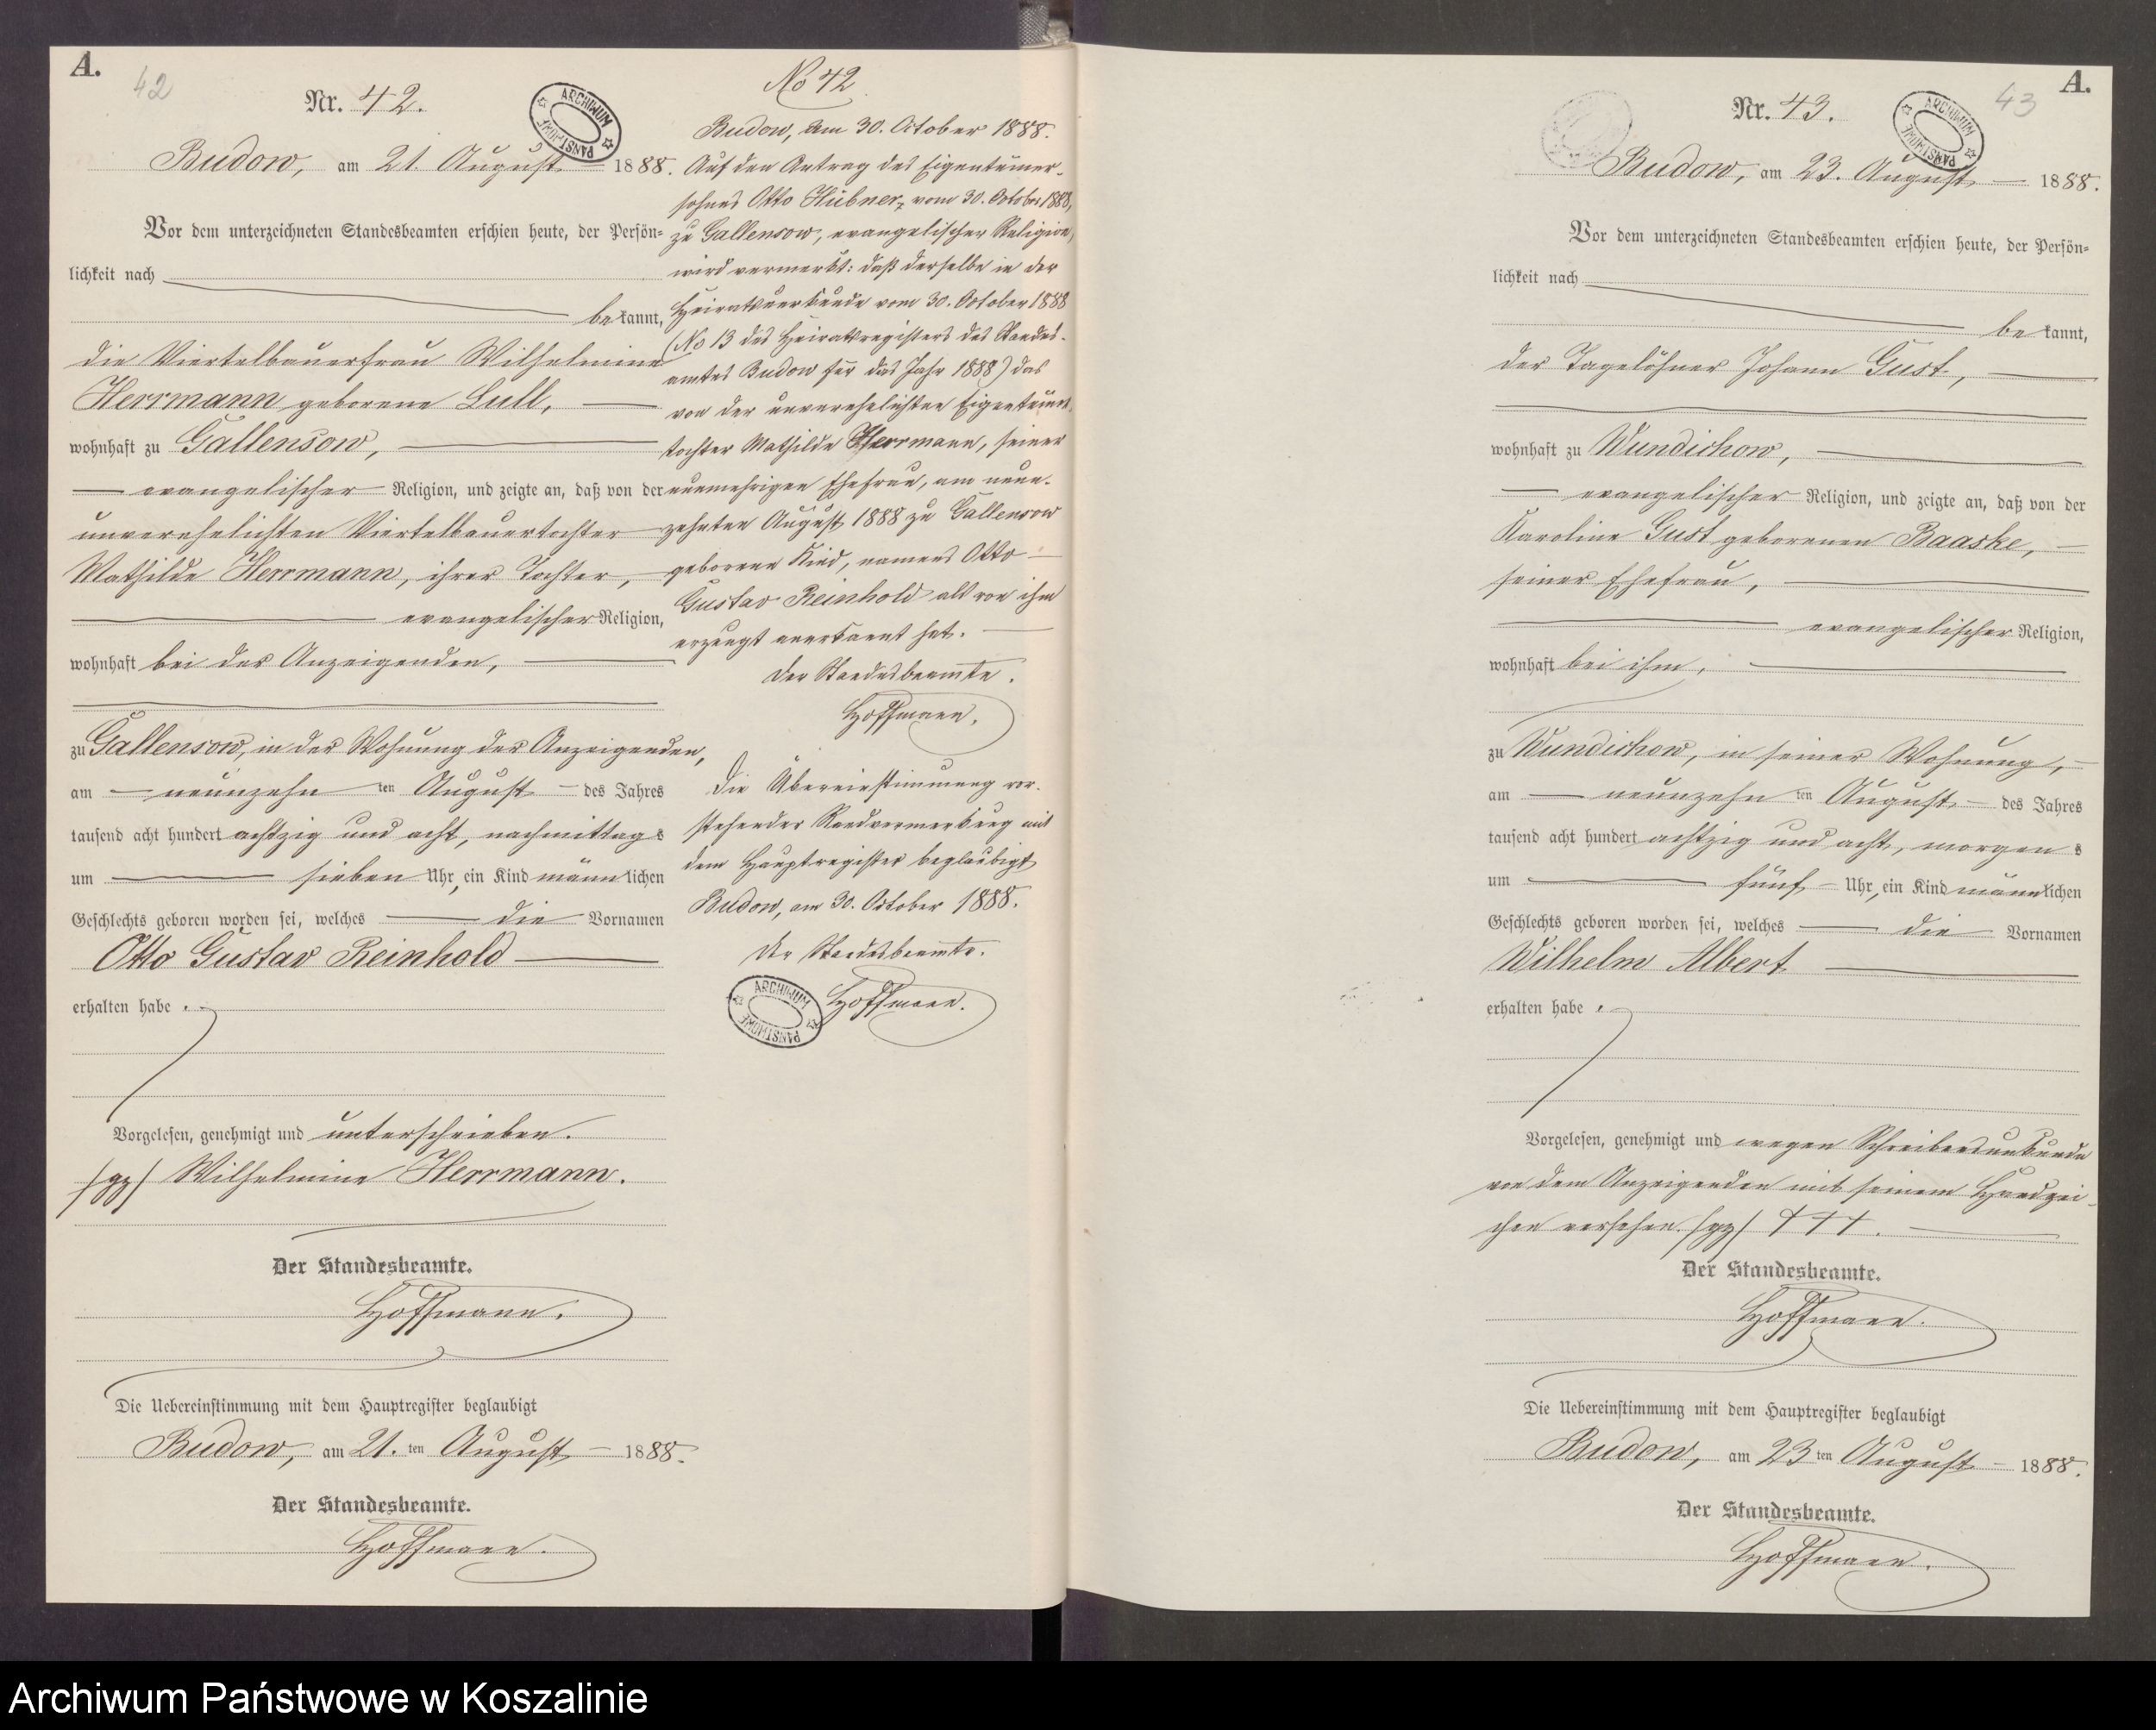 A.
42
Nr. 42.
ARCHIWUM PAŃSTWOWE
Budow, am 21. August 1888.
Vor dem unterzeichneten Standesbeamten erschien heute, der Persön=
lichkeit nach
be kannt,
die Viertelbauerfrau Wilhelmine
Herrmann geborene Lull,
wohnhaft zu Gallensow,
evangelischer Religion, und zeigte an, daß von der
unverehelichten Viertelbauertochter
Mathilde Herrmann, ihrer Tochter,
evangelischer Religion,
wohnhaft bei der Anzeigenden,
zu Gallensow, in der Wohnung der Anzeigenden,
am neunzehn ten August des Jahres
tausend acht hundert achtzig und acht, nachmittag s
um sieben Uhr, ein Kind männ lichen
Geschlechts geboren worden sei, welches die Vornamen
Otto Gustav Reinhold
erhalten habe.
Vorgelesen, genehmigt und unterschrieben.
/gz/ Wilhelmine Herrmann.
Der Standesbeamte.
Hoffmann.
Die Uebereinstimmung mit dem Hauptregister beglaubigt
Budow, am 21. ten August 1888.
Der Standesbeamte.
Hoffmann.
No 42
Budow, am 30. October 1888.
Auf den Antrag des Eigentümer-
sohnes Otto Hübner, vom 30. October 1888,
zu Gallensow, evangelischer Religion,
wird vermerkt: daß derselbe in der
Heiratsurkunde vom 30. October 1888
(No 13 des Heiratsregisters des Standes-
amtes Budow für das Jahr 1888) das
von der unverehelichten Eigentümer-
tochter Mathilde Herrmann, seiner
nunmehrigen Ehefrau, am neun-
zehnten August 1888 zu Gallensow
geborene Kind, namens Otto
Gustav Reinhold als von ihm
erzeugt anerkannt hat.
Der Standesbeamte.
Hoffmann.
Die Übereinstimmung vor-
stehender Randvermerkung mit
dem Hauptregister beglaubigt
Budow, am 30. October 1888.
Der Standesbeamte.
Hoffmann.
ARCHIWUM PAŃSTWOWE
A.
43
Nr. 43.
ARCHIWUM PAŃSTWOWE
Budow, am 23. August 1888.
Vor dem unterzeichneten Standesbeamten erschien heute, der Persön=
lichkeit nach
be kannt,
der Tagelöhner Johann Gust,
wohnhaft zu Wundichow,
evangelischer Religion, und zeigte an, daß von der
Karoline Gust geborenen Baaske,
seiner Ehefrau,
evangelischer Religion,
wohnhaft bei ihm,
zu Wundichow, in seiner Wohnung,
am neunzehn ten August des Jahres
tausend acht hundert achtzig und acht, morgen s
um fünf Uhr, ein Kind männ lichen
Geschlechts geboren worden sei, welches die Vornamen
Wilhelm Albert
erhalten habe.
Vorgelesen, genehmigt und wegen Schreibensunkunde
von dem Anzeigenden mit seinem Handzei-
chen versehen. /gz/ +++.
Der Standesbeamte.
Hoffmann.
Die Uebereinstimmung mit dem Hauptregister beglaubigt
Budow, am 23 ten August 1888.
Der Standesbeamte.
Hoffmann.
Archiwum Państwowe w Koszalinie